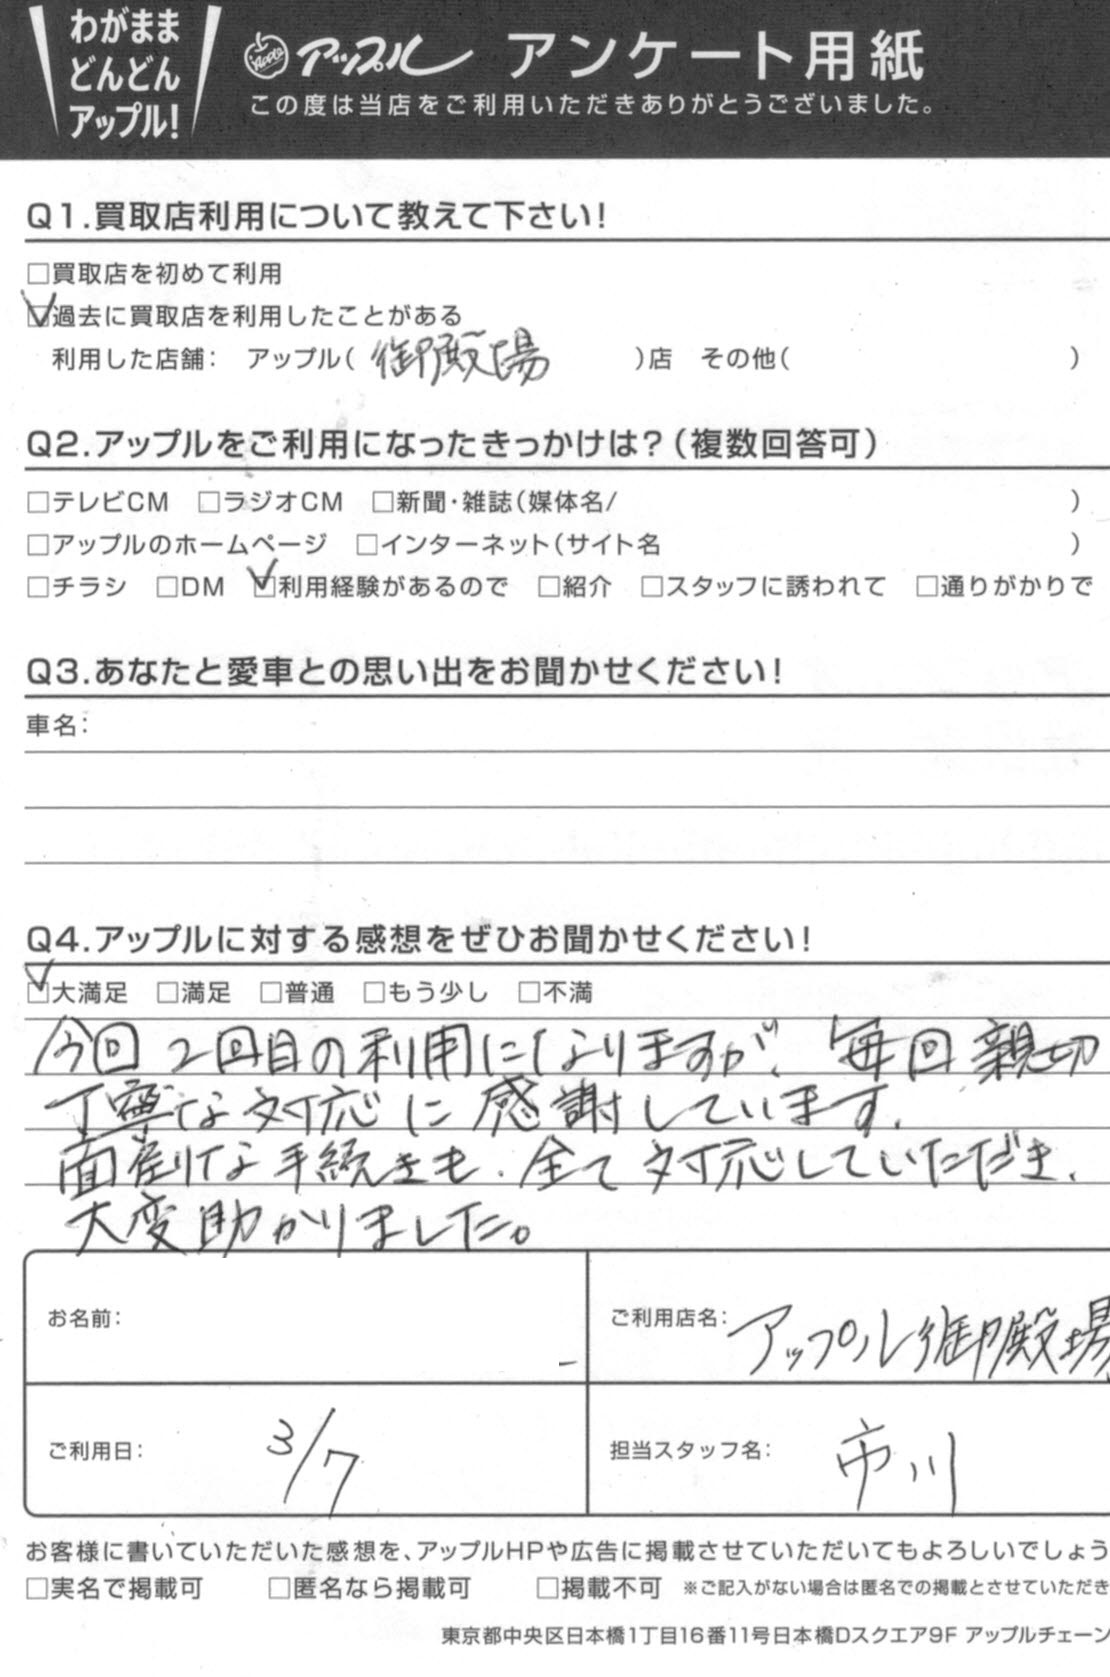 わがまま
どんどん
アップル!
Apple アップル アンケート用紙
この度は当店をご利用いただきありがとうございました。
Q1.買取店利用について教えて下さい!
□買取店を初めて利用
☑過去に買取店を利用したことがある
利用した店舗: アップル(御殿場)店 その他( )
Q2.アップルをご利用になったきっかけは?(複数回答可)
□テレビCM □ラジオCM □新聞・雑誌(媒体名/ )
□アップルのホームページ □インターネット(サイト名 )
□チラシ □DM ☑利用経験があるので □紹介 □スタッフに誘われて □通りがかりで
Q3.あなたと愛車との思い出をお聞かせください!
車名:
Q4.アップルに対する感想をぜひお聞かせください!
☑大満足 □満足 □普通 □もう少し □不満
今回2回目の利用になりますが、毎回親切
丁寧な対応に感謝しています。
面倒な手続きも、全て対応していただき、
大変助かりました。
お名前:
ご利用店名: アップル御殿場
ご利用日: 3/7
担当スタッフ名: 市川
お客様に書いていただいた感想を、アップルHPや広告に掲載させていただいてもよろしいでしょう
□実名で掲載可 □匿名なら掲載可 □掲載不可 ※ご記入がない場合は匿名での掲載とさせていただき
東京都中央区日本橋1丁目16番11号日本橋Dスクエア9F アップルチェーン